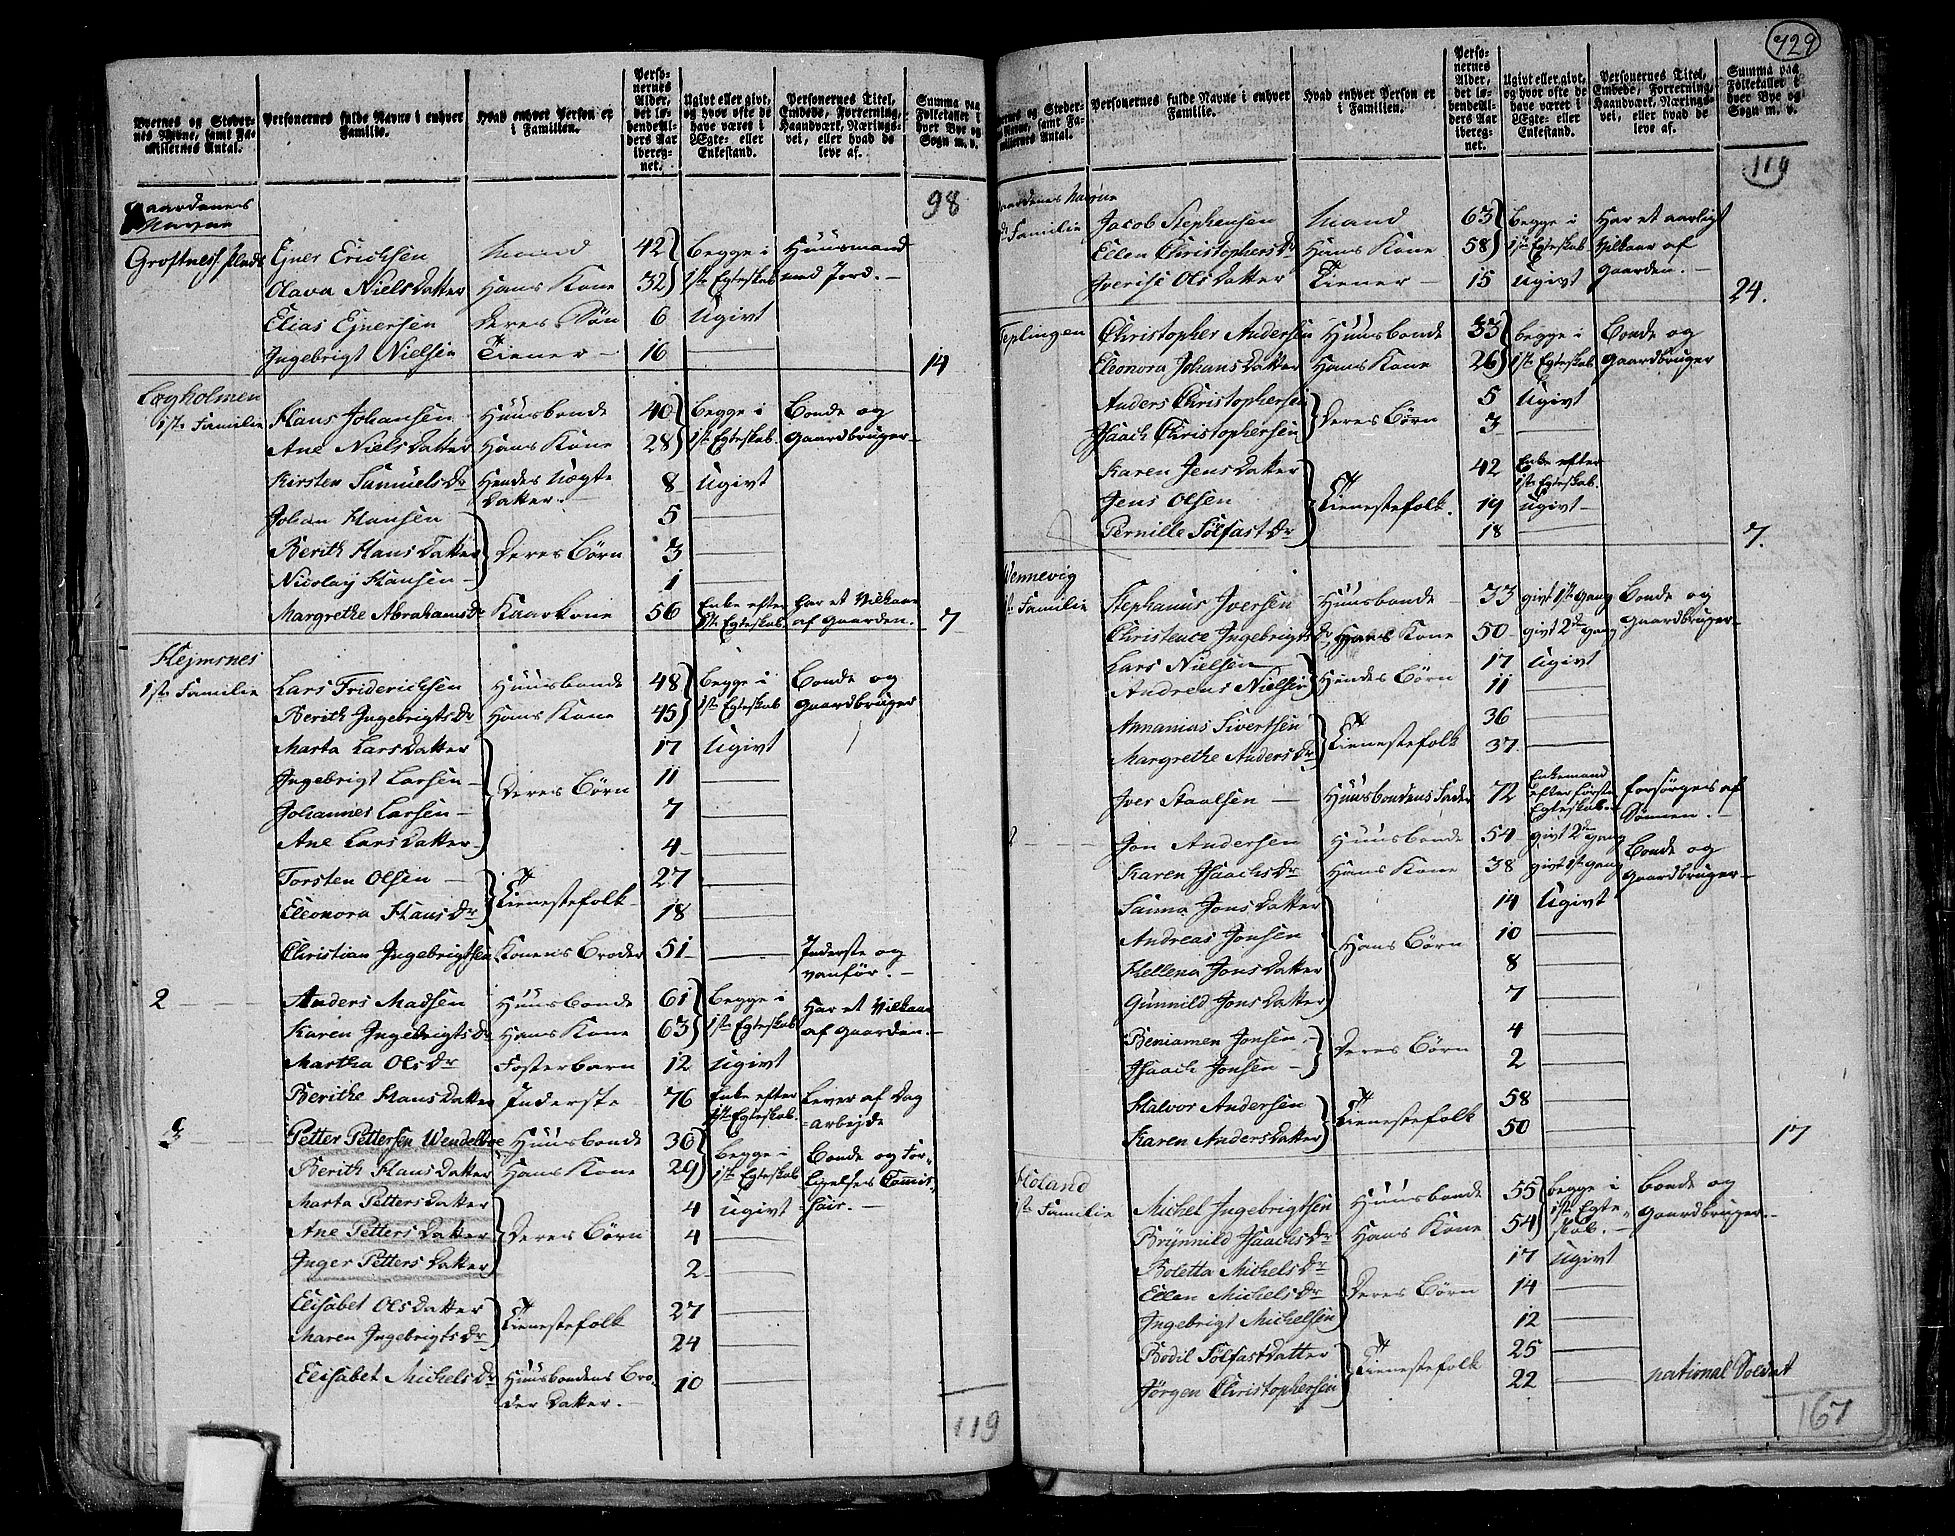 729
Byernes og Steder-
nes Navne, samt Fa-
miliernes Antal.
Personernes fulde Navne i enhver
Familie.
Hvad enhver Person er
i Familien.
Perso-
nernes
Alder,
det lø-
bende Al-
ders Aar
ibereg-
net.
Ugivt eller givt,
og hvor ofte de
have været i
Ægte- eller
Enkestand.
Personernes Titel,
Embede, Forretning,
Haandværk, Nærings-
vei, eller hvad de
leve af.
Summa paa
Folketallet i
hver Bye og
Sogn m. v.
Gaardenes
Navne
98
Ejner Erichsen Mand 42 begge i Huusmand
Olava Nielsdatter Hans Kone 32 1ste Egteskab med Jord. —
Elias Ejnersen Deres Søn 6 Ugivt
Ingebrigt Nielsen Tiener — 16 —
14
Legholmen
1ste Familie Hans Johansen Huusbonde 40 begge i Bonde og
Ane Nielsdatter Hans Kone 28 1ste Egteskab. Gaardbruger
Kirsten Samuelsdr Hendes Uægte 8 Ugivt
Datter. —
Johan Hansen 5 —
Berith Hansdatter Deres Børn 3 —
Nicolaÿ Hansen — 1 —
Margrethe Abrahamsdr Kaarkone 56 Enke efter har et Vilkaar
1ste Egteskab. af Gaarden. — 7
Hejmsnes
1ste Familie Lars Friderichsen Huusbonde 48 begge i Bonde og
Berith Ingebrigtsdr Hans Kone 45 1ste Egteskab Gaardbruger
Marta Larsdatter 17 Ugivt
Ingebrigt Larsen — Deres Børn 11 —
Johannes Larsen — 7 —
Ane Larsdatter 4 —
Torsten Olsen — Tienestefolk 27 —
Eleonora Hansdr 18 —
Christian Ingebrigtsen Konens Broder 51 — Inderste og
vanfør. —
2 — Anders Madsen Huusbonde 61 begge i Har et Vilkaar
Karen Ingebrigtsdr Hans Kone 63 1ste Egteskab af Gaarden. —
Martha Olsdr Fosterbarn 12 Ugivt
Berithe Hansdatter Inderste — 76 Enke efter Lever af Dag
1ste Egteskab. =arbejde
3 — Petter Pettersen Huusbonde 36 begge i Bonde og For-
Berith Hansdatter Hans Kone 29 1ste Egteskab
Marta Pettersdatter 4 Ugivt
Ane Pettersdatter Deres Børn 4 —
Inger Pettersdatter 2 —
Elisabet Olsdatter Tienestefolk 27 —
Maren Ingebrigtsdr 24 —
Elisabet Michelsdr Huusbondens Bro- 10 —
der Datter. —
119
Personernes fulde Navne i enhver
Familie.
Hvad enhver Person er
i Familien.
Perso-
nernes
Alder,
det lø-
bende Al-
ders Aar
ibereg-
net.
Ugivt eller givt,
og hvor ofte de
have været i
Ægte- eller
Enkestand.
Personernes Titel,
Embede, Forretning,
Haandværk, Nærings-
vei, eller hvad de
leve af.
Summa paa
Folketallet i
hver Bye og
Sogn m. v.
119
Familie Jacob Stephensen Mand 63 begge i Har et aarligt
Ellen Christophersdr Hans Kone 58 1ste Egteskab Vilkaar af
Olsdatter Tiener — 15 Ugivt Gaarden. —
24.
Teplingen Christopher Andersen Huusbonde 33 begge i Bonde og
Eleonora Johansdatter Hans Kone 26 1ste Egteskab Gaardbruger
Anders Christophersen Deres Børn 5 Ugivt
Isaach Christophersen 3 —
Karen Jensdatter 42 Enke efter
1ste Egteskab.
Jens Olsen Tienestefolk. 19 Ugivt —
Pernille Solfastdr 18 —
7.
Wennevig
1ste Familie Stephanus Iversen Huusbonde 33 givt 1ste Gang Bonde og
Christence Ingebrigtsdr Hans Kone 50 givt 2den Gang Gaardbruger —
Lars Nielsen — Hendes Børn 17 Ugivt
Andreas Nielsen 11 —
Annanias Sivertsen Tienestefolk 36 —
Margrethe Andersdr 37 —
Iver Staalsen — Huusbondens Fader 72 Enkemand
efter første
Egteskab. — forsørges af
Sønnen. —
Jon Andersen Huusbonde 54 givt 2den Gang Bonde og
Karen Isaachsdr Hans Kone 38 givt 1ste Gang Gaardbruger —
Sanna Jonsdatter 14 Ugivt
Andreas Jonsen Hans Børn 10 —
Hellena Jonsdatter 8 —
Gunnild Jonsdatter 7 —
Beniamen Jonsen — Deres Børn 4 —
Isaach Jonsen — 2 —
Halvor Andersen Tienestefolk 58 —
Karen Andersdatter 50 —
17
Holand
1ste Familie Michel Ingebrigtsen Huusbonde 55 begge i Bonde og
Brynnild Isaachsdr Hans Kone 54 1ste Egte-
skab. — Gaardbruger —
Boletta Michelsdr 17 Ugivt
Ellen Michelsdr Deres Børn 14 —
Ingebrigt Michelsen 12 —
Bodil Solfastdatter Tienestefolk 25 —
Jørgen Christophersen 22 — national Soldat
167